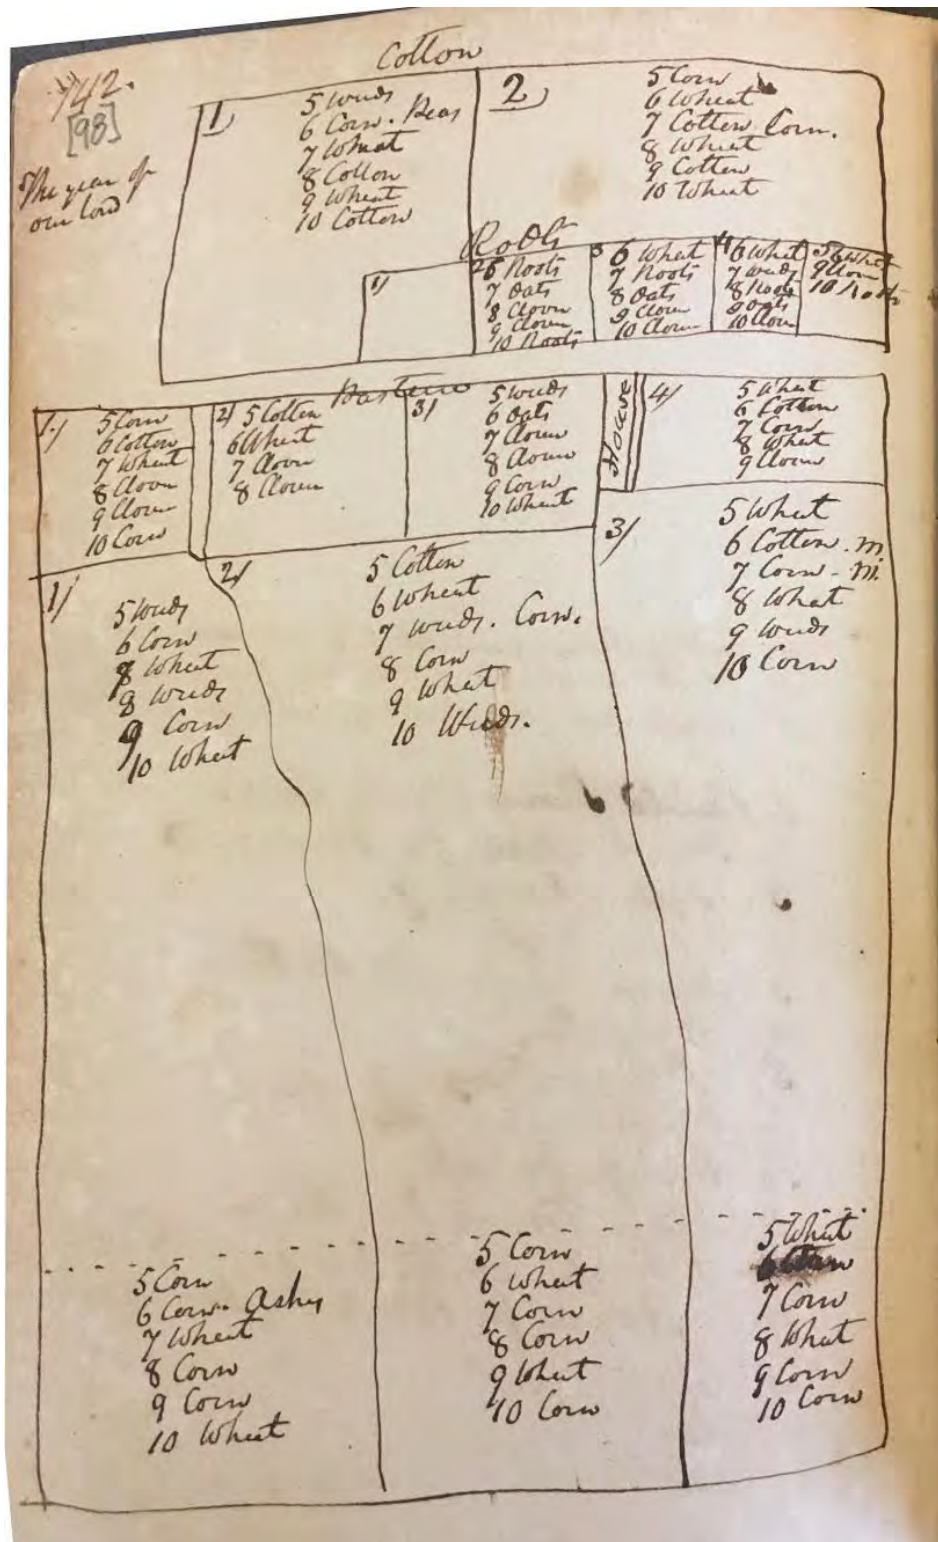 Cotton
142.
[98]
The year of
our lord
1
5 weeds
6 Corn. Peas
7 Wheat
8 Cotton
9 Wheat
10 Cotton
2
5 Corn
6 Wheat
7 Cotton Corn.
8 Wheat
9 Cotton
10 Wheat
Roots
1/
2 6 Roots
7 Oats
8 Clover
9 Clover
10 Roots
3 6 Wheat
7 Roots
8 Oats
9 Clover
10 Clover
4 6 Wheat
7 weeds
8 Roots
9 Oats
10 Clover
5 6 Wheat
9 Corn
10 Roots
Pasture
1/
5 Corn
6 Cotton
7 Wheat
8 Clover
9 Clover
10 Corn
2/ 5 Cotton
6 Wheat
7 Clover
8 Clover
3/
5 weeds
6 Oats
7 Clover
8 Clover
9 Corn
10 Wheat
House
4/
5 Wheat
6 Cotton
7 Corn
8 Wheat
9 Clover
1/
5 Weeds
6 Corn
8 Wheat
9 Weeds
9 Corn
10 Wheat
2/
5 Cotton
6 Wheat
7 weeds. Corn.
8 Corn
9 Wheat
10 Weeds.
3/
5 Wheat
6 Cotton. m
7 Corn - m.
8 Wheat
9 weeds
10 Corn
5 Corn
6 Corn. Ashes
7 Wheat
8 Corn
9 Corn
10 Wheat
5 Corn
6 Wheat
7 Corn
8 Corn
9 Wheat
10 Corn
5 Wheat
6
7 Corn
8 Wheat
9 Corn
10 Corn